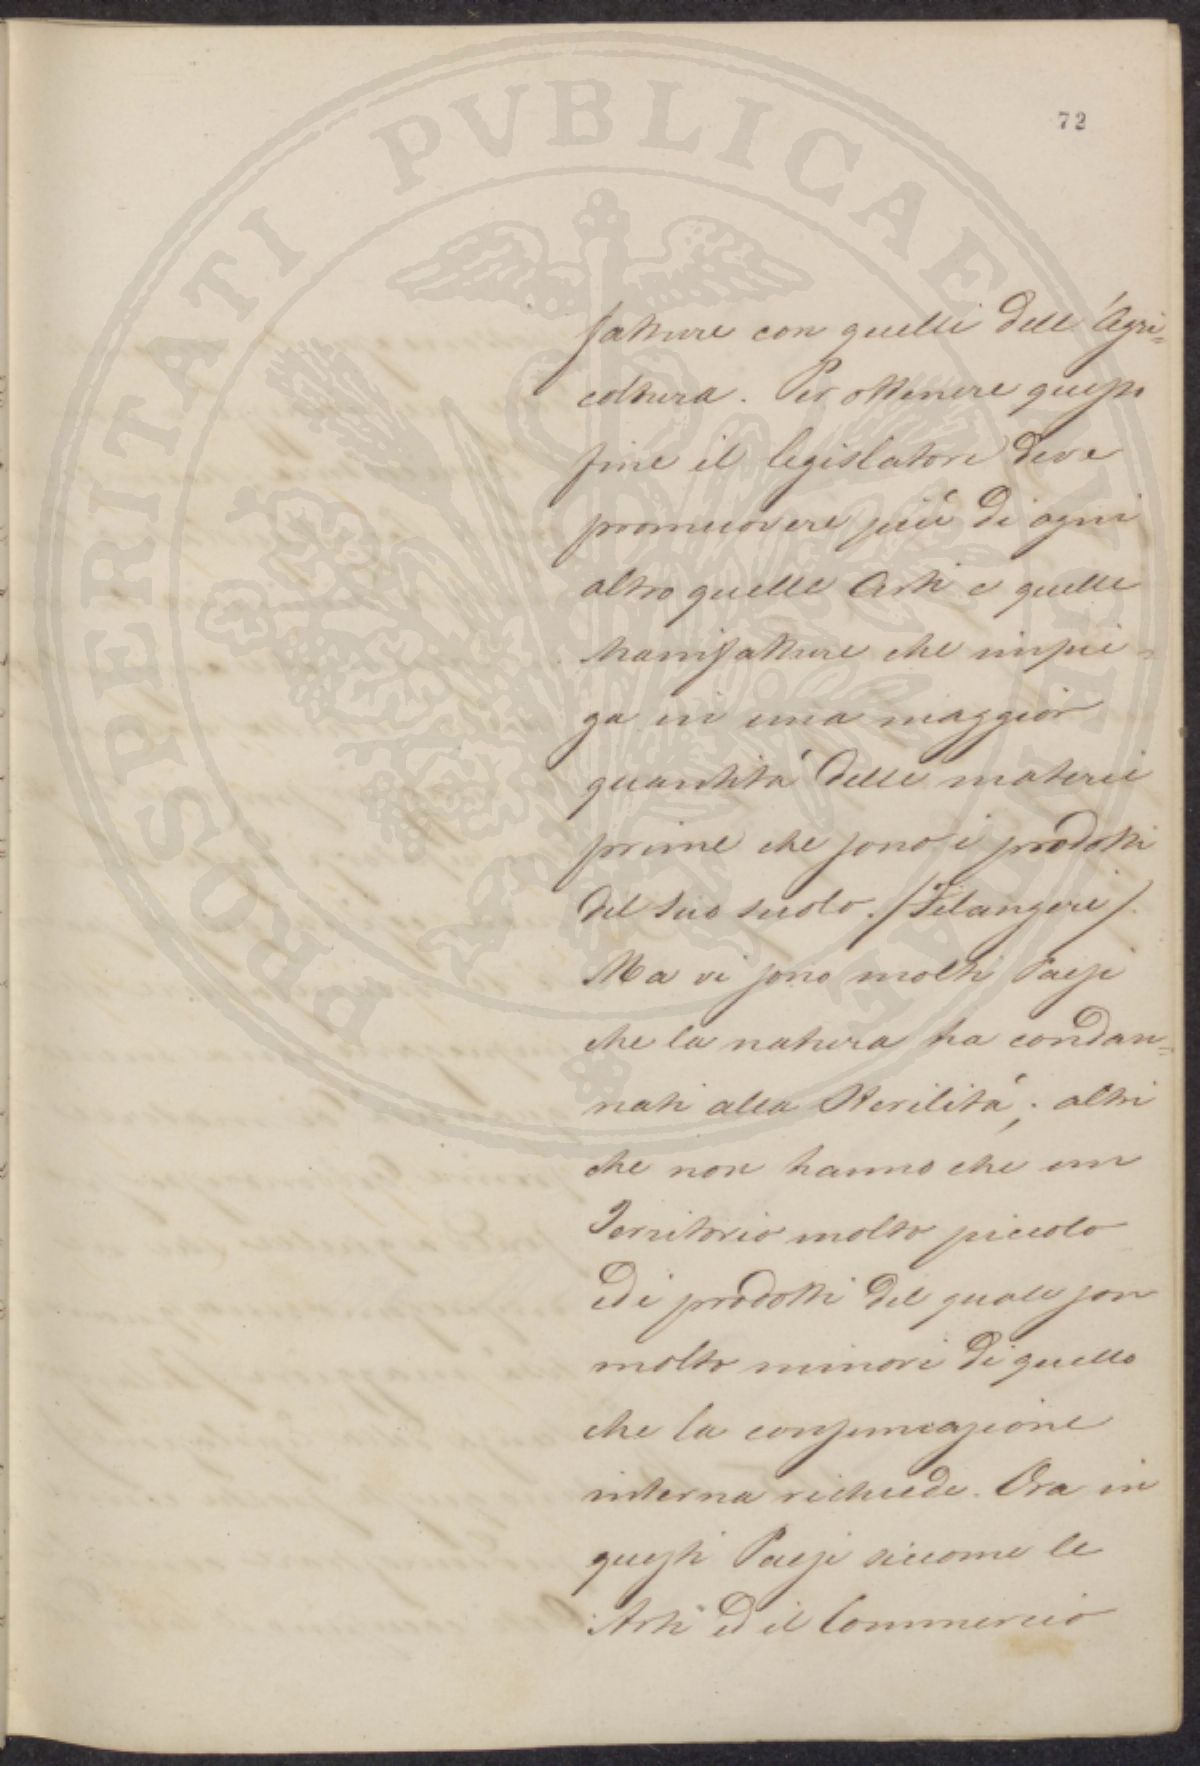 72
fatture con quelli dell'Agri=
coltura. Per ottenere questo
fine il legislatore deve
promuovere più di ogni
altro quelle Arti e quelle
Manifatture che impie=
ga in una maggior
quantità delle materie
prime che sono i prodotti
del suo suolo. /Filangeri/.
Ma vi sono molti Paesi
che la natura ha condan=
nati alla Sterilità; altri
che non hanno che un
Territorio molto piccolo
ed i prodotti del quale son
molto minori di quello
che la consumazione
interna richiede. Ora in
questi Paesi siccome le
Arti ed il Commercio
PROSPERITATI PVBLICAE